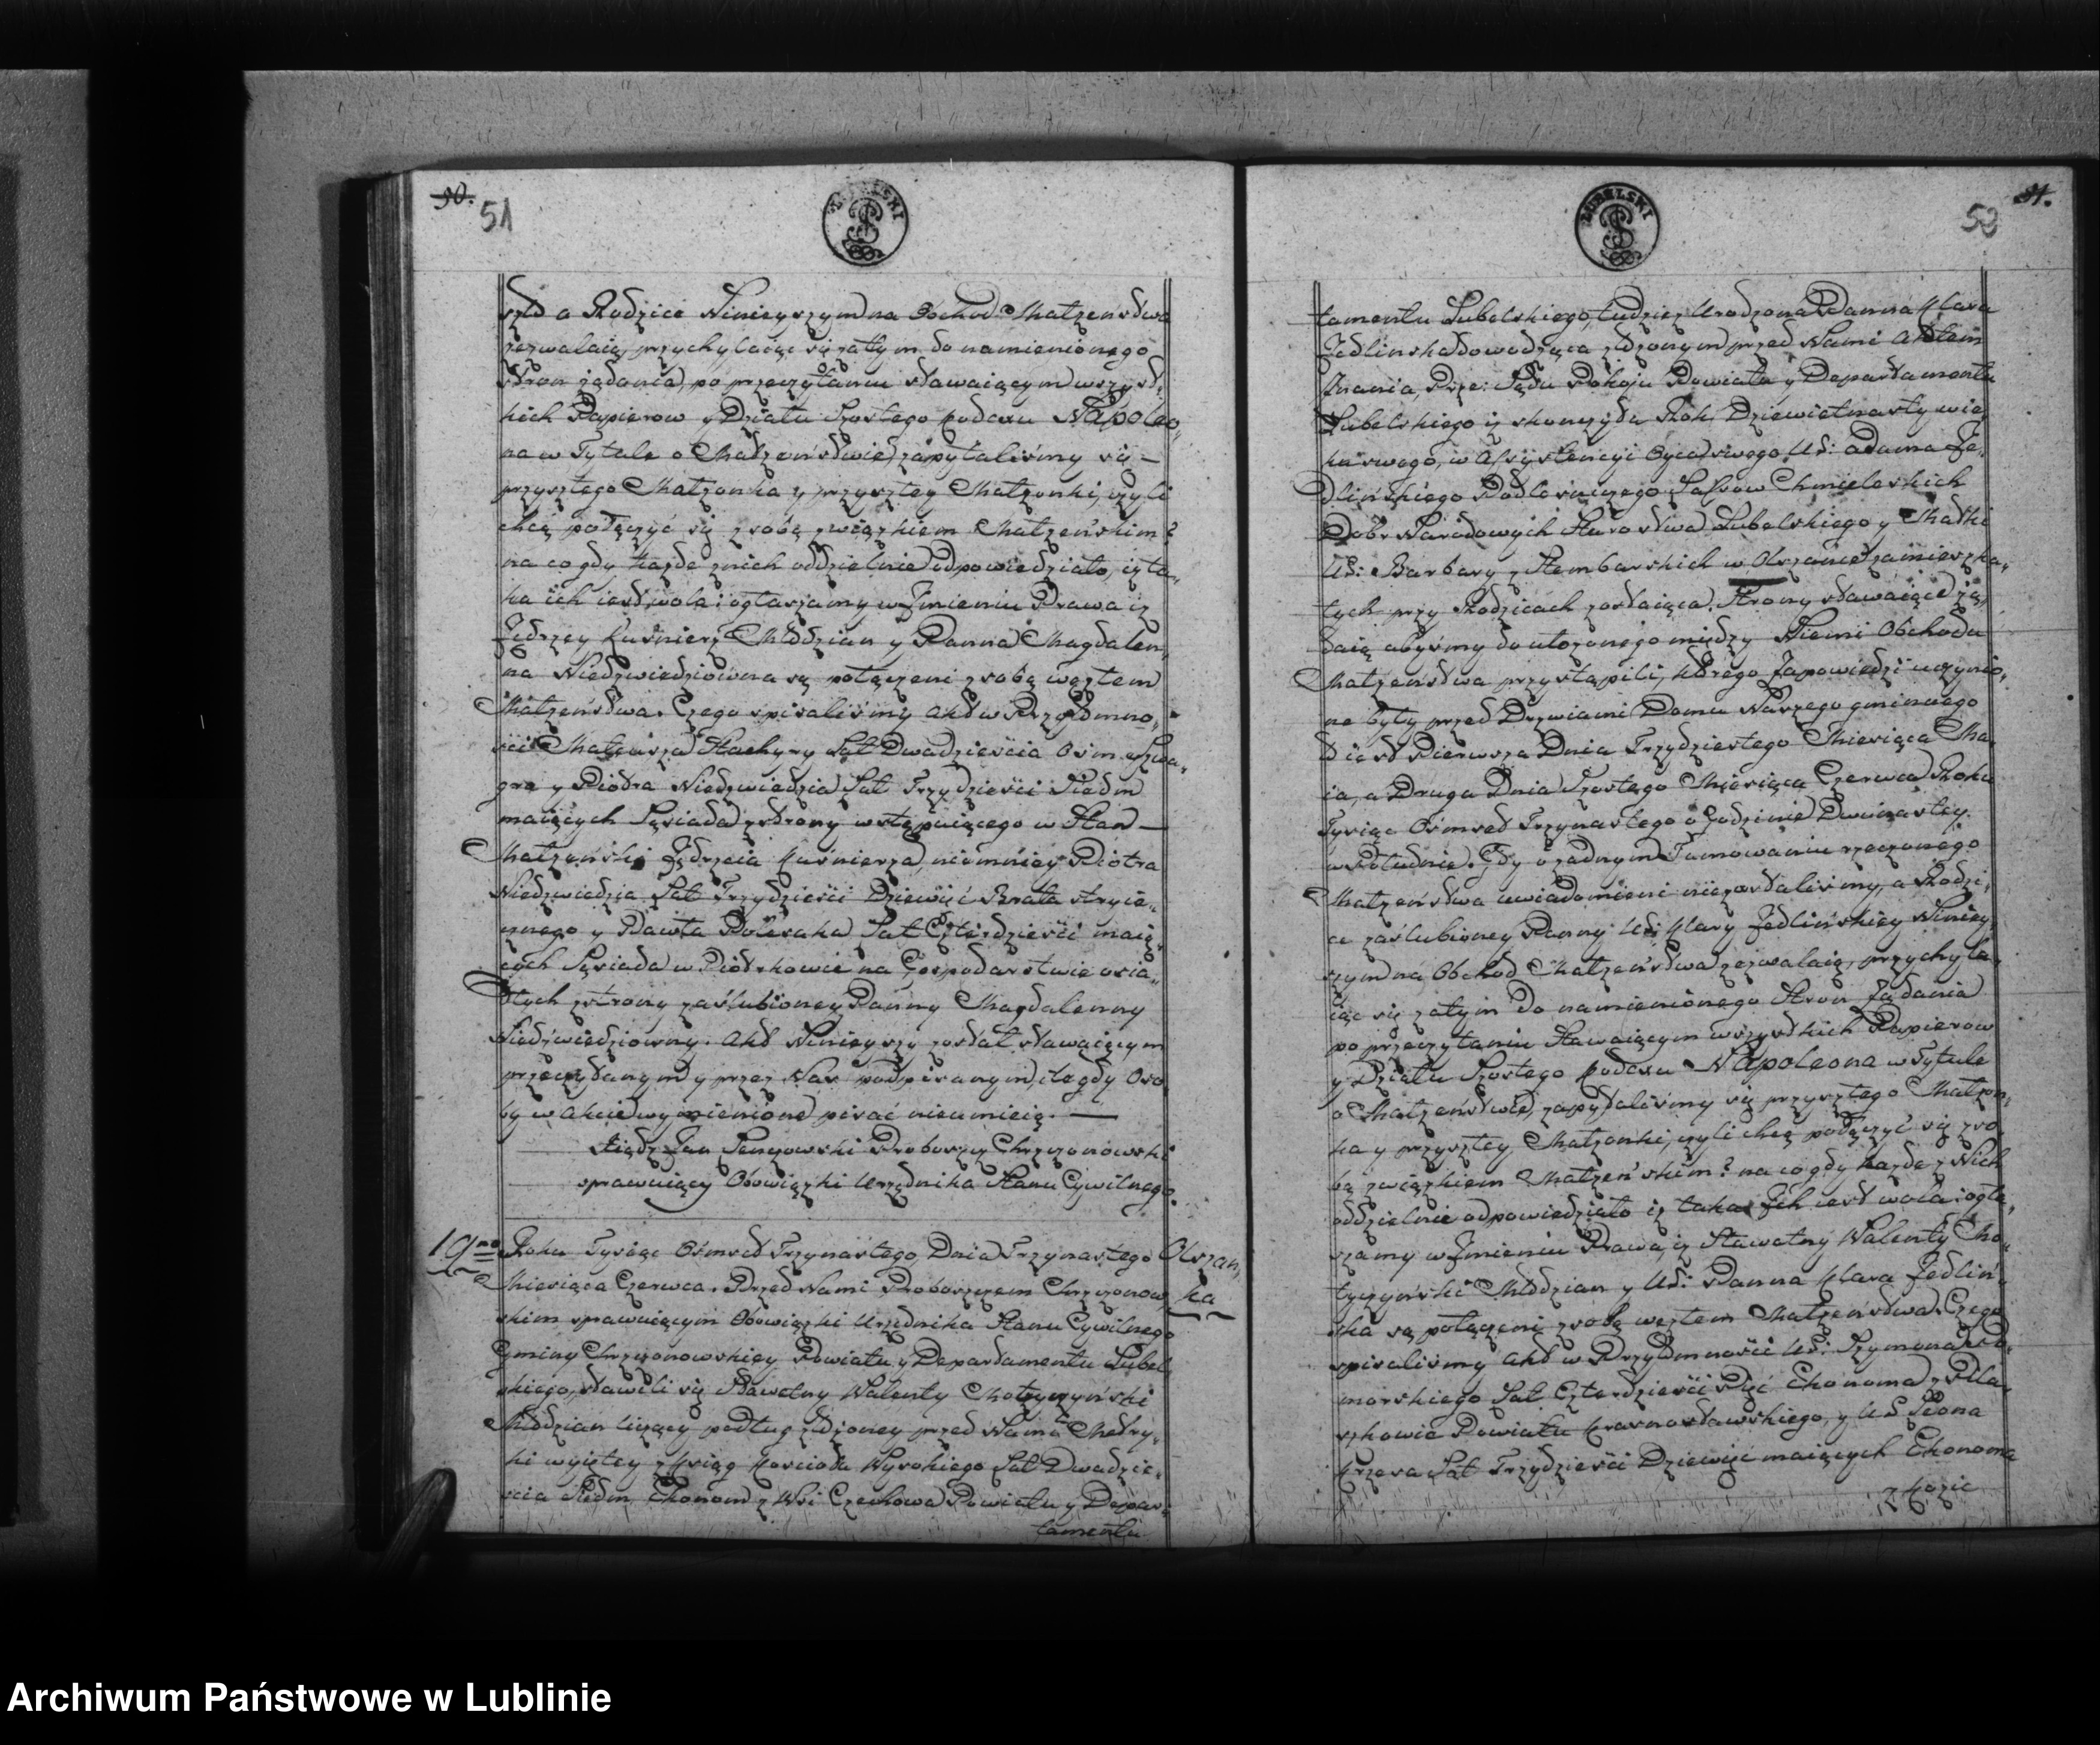 50.
51
LUBELSKI
szło a Rodzice Ninieyszym na Obchod Małzeństwa
zezwalaią, przychylaiąc się zatym do namienionego
stron ządania, po przeczytaniu stawaiącym wszyst-
kich Papierow y Działu Szostego Kodexu Napoleo-
na w Tytule o Małzeństwie, zapytaliśmy się
przyszłego Małzonka y przyszłey Małzonki, czyli
chcą połączyć się z sobą związkiem Małzeńskim?
na co gdy kazde z nich oddzielnie odpowiedziało, iz ta-
ka ich iest wola: ogłaszamy w Imieniu Prawa iz
Jędrzey Kuśnierz Młodzian y Panna Magdalen-
na Niedzwiedziowna są połączeni z sobą węzłem
Małzeństwa. Czego spisaliśmy Akt w Przytomno-
ści Mateusza Stachyry Lat Dwadzieścia Ośm Szwa-
gra y Piotra Niedzwiedzia Lat Trzydzieści Siedm
maiących Sąsiada z strony wstępuiącego w Stan
Małzeński Jędrzeia Kuśnierza, niemniey Piotra
Niedzwiedzia Lat Trzydzieści Dziewięć Brata stryie-
cznego y Pawła Poleszka Lat Czterdzieści maią-
cych Sąsiada w Piotrkowie na Gospodarstwie osia-
dłych z strony zaślubioney Panny Magdalenny
Niedźwiedziowny. Akt Ninieyszy został stawaiącym
przeczytanym y przez Nas podpisanym, ile gdy Oso-
by w Akcie wymienione pisać nieumieią.
Xiądz Jan Proboszcz Chrzczonowski
sprawuiący Obowiązki Urzędnika Stanu Cywilnego
19no
Roku Tysiąc Ośmset Trzynastego, Dnia Trzynastego
Olszan-
Miesiąca Czerwca. Przed Nami Proboszczem Chrzczonow-
ka
skim sprawuiącym Obowiązki Urzędnika Stanu Cywilnego
Gminy Chrzczonowskiey Powiatu y Departamentu Lubel-
skiego, stawili się Sławetny Walenty Chotyczyński
Młodzian liczący podług złozoney przed Nami Metry-
ki wyiętey z Xsiąg Kościoła Wysokiego Lat Dwadzie-
ścia Siedm, Ekonom z Wsi Czechowa Powiatu y Depar-
tamentu
51.
52
LUBELSKI
tamentu Lubelskiego, tudziez Urodzona Panna Klara
Jedlinska dowodząca złozonym przed Nami Aktem
Znania, Prze: Sądu Pokoju Powiatu y Departamentu
Lubelskiego iz skonczyła Rok Dziewietnasty wie-
ku swego, w Assystencyi Oyca swego Ur: Adama Je-
dlińskiego Podleśniczego Lassow Chmieleskich
Dobr Narodowych Starostwa Lubelskiego y Matki
Ur: Barbary z Stembarskich w Olszance zamieszka-
łych przy Rodzicach zostaiąca. Strony stawaiące zą-
daią abyśmy do ułozonego między Niemi Obchodu
Małzeństwa przystąpili, ktorego Zapowiedzi uczynio-
ne były przed Drzwiami Domu Naszego gminnego
to iest Pierwsza Dnia Trzydziestego Miesiąca Ma-
ia, a Druga Dnia Szostego Miesiąca Czerwca Roku
Tysiąc Ośmset Trzynastego o Godzinie Dwunastey
w Południe. Gdy o zadnym Tamowaniu rzeczonego
Małzeństwa uwiadomieni niezostaliśmy, a Rodzi-
ce zaślubioney Panny Ur: Klary Jedlińskiey Niniey-
szym na Obchod Małzeństwa zezwalaią, przychyla-
iąc się zatym do namienionego Stron Ządania
po przeczytaniu Stawaiącym wszystkich Papierow
y Działu Szostego Kodexu Napoleona w Tytule
o Małzeństwie, zapytaliśmy się przyszłego Małzon-
ka y przyszłey Małzonki, czyli chcą połączyć się z so-
bą związkiem Małzeńskim? na co gdy kazde z Nich
oddzielnie odpowiedziało iz taka Ich iest wola: ogła-
szamy w Imieniu Prawa, iz Sławetny Walenty Cho-
tyczyński Młodzian y Ur: Panna Klara Jedliń-
ska są połączeni z sobą węzłem Małzeństwa. Czego
spisaliśmy Akt w Przytomności Ur: Szymona
morskiego Lat Czterdzieści Pięć Ekonoma z Pila-
szkowic Powiatu Krasnostawskiego, y Ur Leona
Lat Trzydzieści Dziewięć maiących Ekonoma
z Kozic
Archiwum Państwowe w Lublinie